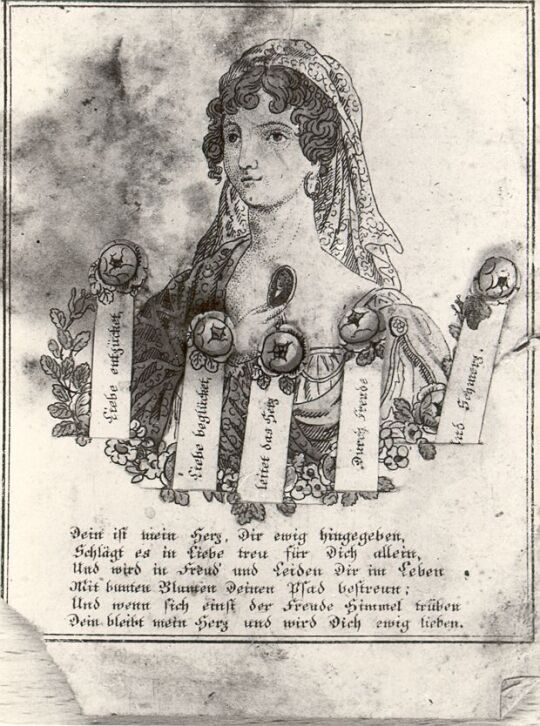 Liebe entzücket,
Liebe beglücket,
leitet das Herz
Durch Freude
und Schmerz.
Dein ist mein Herz, Dir ewig hingegeben,
Schlägt es in Liebe treu für Dich allein,
Und wird in Freud' und Leiden Dir im Leben
Mit bunten Blumen Deinen Pfad bestreun;
Und wenn sich einst der Freude Himmel trüben
Dein bleibt mein Herz und wird Dich ewig lieben.